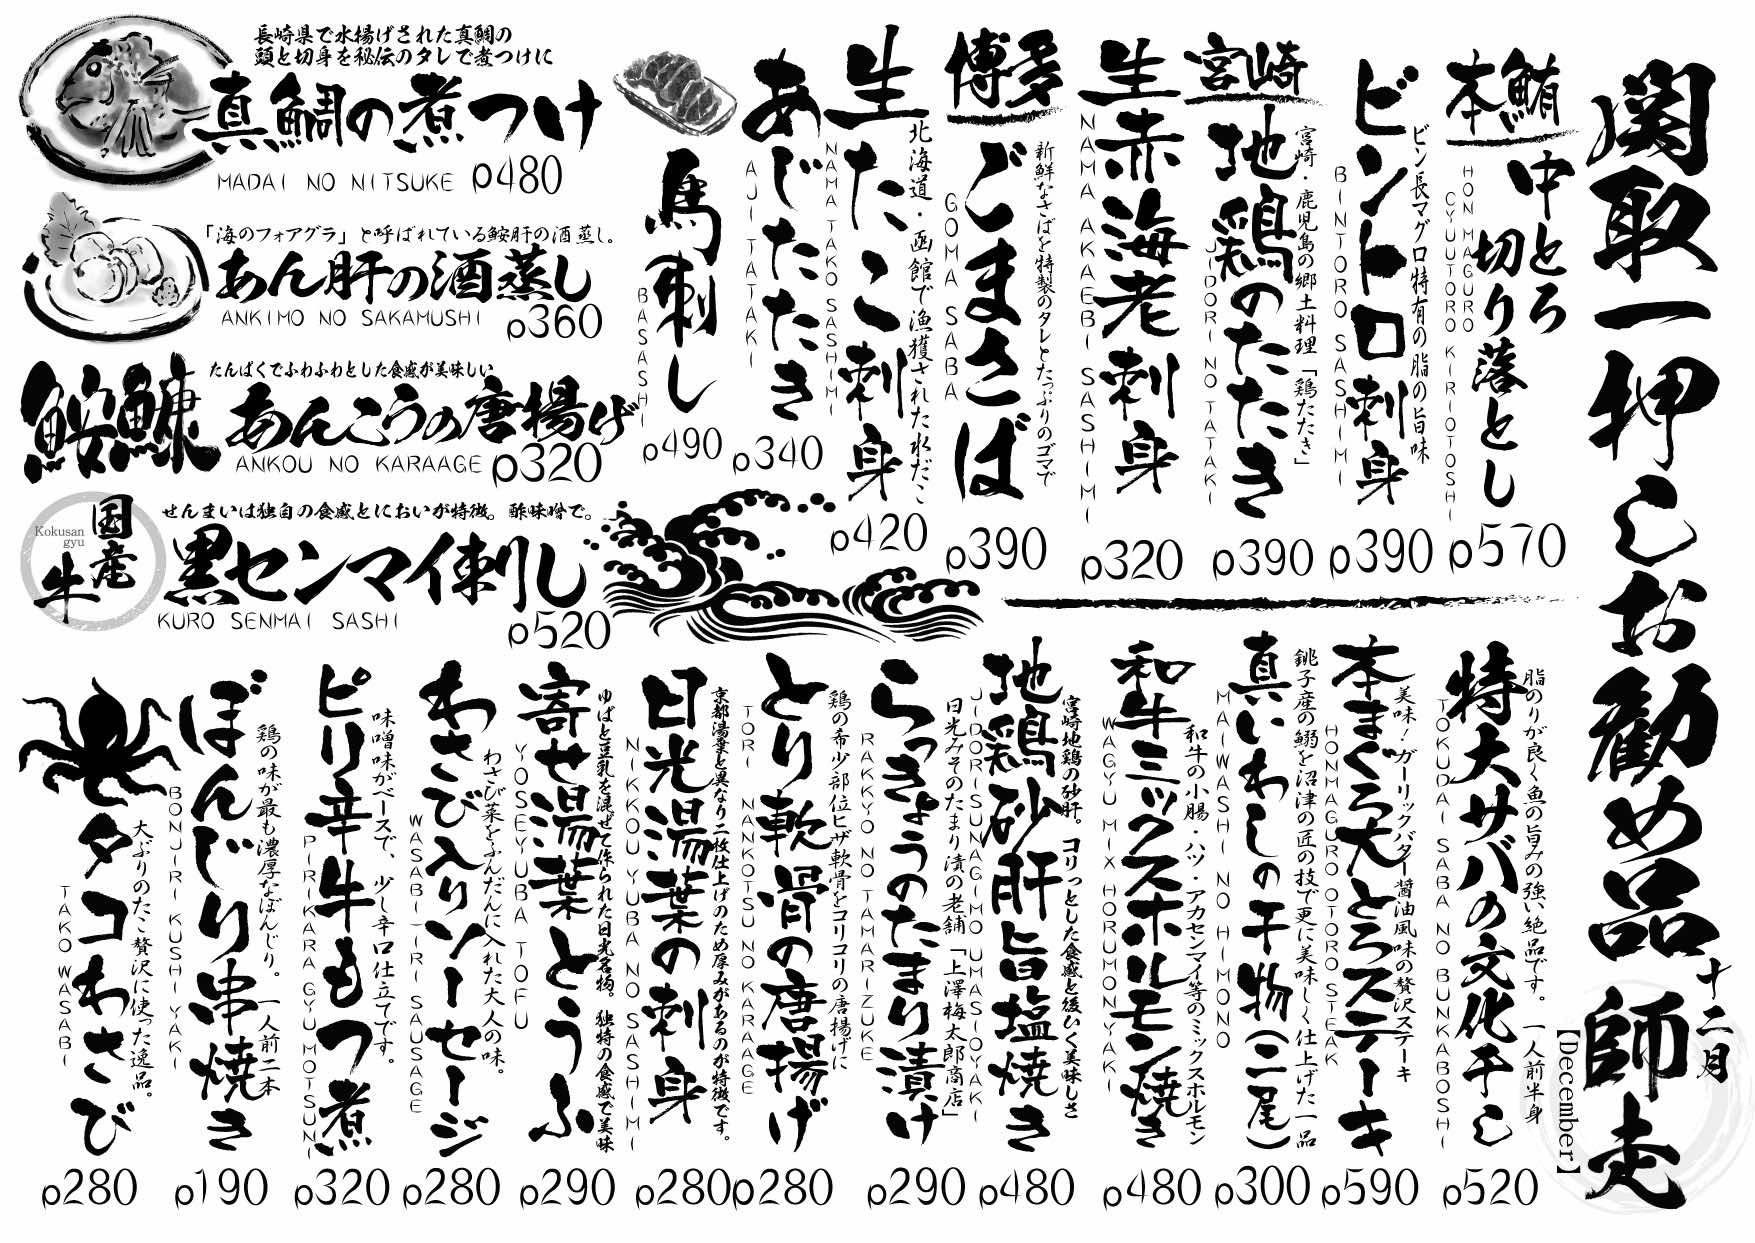 関取一押しお勧め品
十二月
師走
【December】
本鮪
中とろ
切り落とし
HON MAGURO
CYUTORO KIRIOTOSHI
p570
ビントロ刺身
ビン長マグロ特有の脂の旨味
BINTORO SASHIMI
p390
宮崎
地鶏のたたき
宮崎・鹿児島の郷土料理「鶏たたき」
JIDORI NO TATAKI
p390
生赤海老刺身
NAMA AKAEBI SASHIMI
p320
博多
ごまさば
新鮮なさばを特製のタレとたっぷりのゴマで
GOMA SABA
p390
生たこ刺身
北海道・函館で漁獲された水だこ
NAMA TAKO SASHIMI
p420
あじたたき
AJI TATAKI
p340
馬刺し
BASASHI
p490
長崎県で水揚げされた真鯛の
頭と切身を秘伝のタレで煮つけに
真鯛の煮つけ
MADAI NO NITSUKE p480
「海のフォアグラ」と呼ばれている鮟肝の酒蒸し。
あん肝の酒蒸し
ANKIMO NO SAKAMUSHI p360
鮟鱇
たんぱくでふわふわとした食感が美味しい
あんこうの唐揚げ
ANKOU NO KARAAGE p320
Kokusan
gyu
国産
牛
せんまいは独自の食感とにおいが特徴。酢味噌で。
黒センマイ刺し
KURO SENMAI SASHI
p520
特大サバの文化干し
脂のりが良く魚の旨みの強い絶品です。一人前半身
TOKUDAI SABA NO BUNKABOSHI
p520
本まぐろ大とろステーキ
美味！ガーリックバター醤油風味の贅沢ステーキ
HONMAGURO OTORO STEAK
p590
真いわしの干物(二尾)
銚子産の鰯を沼津の匠の技で更に美味しく仕上げた一品
MAIWASHI NO HIMONO
p300
和牛ミックスホルモン焼き
和牛の小腸・ハツ・アカセンマイ等のミックスホルモン
WAGYU MIX HORUMONYAKI
p480
地鶏砂肝旨塩焼き
宮崎地鶏の砂肝。コリっとした食感と後ひく美味しさ
JIDORI SUNAGIMO UMASIOYAKI
p480
らっきょうのたまり漬け
日光みそのたまり漬の老舗「上澤梅太郎商店」
RAKKYO NO TAMARIZUKE
p290
とり軟骨の唐揚げ
鶏の希少部位ヒザ軟骨をコリコリの唐揚げに
TORI NANKOTSU NO KARAAGE
p280
日光湯葉の刺身
京都湯葉と異なり二枚仕上げのため厚みがあるのが特徴です。
NIKKOU YUBA NO SASHIMI
p280
寄せ湯葉とうふ
ゆばと豆乳を混ぜて作られた日光名物。独特の食感で美味
YOSEYUBA TOFU
p290
わさび入りソーセージ
わさび菜をふんだんに入れた大人の味。
WASABI-IRI SAUSAGE
p280
ピリ辛牛もつ煮
味噌味がベースで、少し辛口仕立てです。
PIRIKARA GYUMOTSUNI
p320
ぼんじり串焼き
鶏の味が最も濃厚なぼんじり。一人前二本
BONJIRI KUSHIYAKI
p190
タコわさび
大ぶりのたこ贅沢に使った逸品。
TAKO WASABI
p280